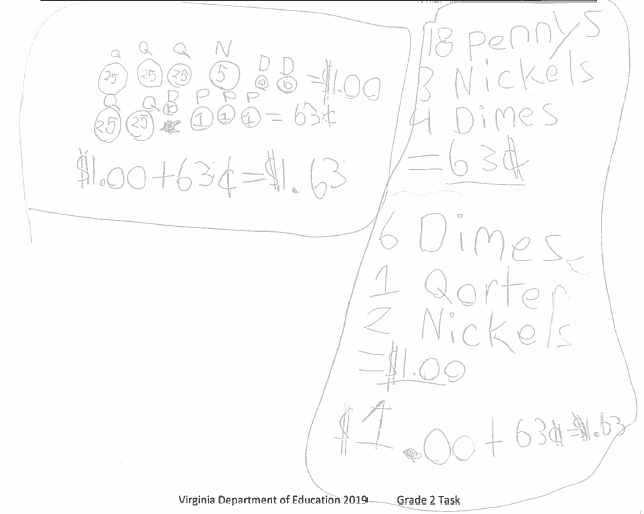 Q Q Q N D D
25 25 25 5 10 10 = $1.00
Q Q D P P P
25 25 1 1 1 = 63¢
$1.00 + 63¢ = $1.63
18 pennys
3 Nickels
4 Dimes
= 63¢
6 Dimes
1 Qorter
2 Nickels
= $1.00
$1.00 + 63¢ = $1.63
Virginia Department of Education 2019 Grade 2 Task